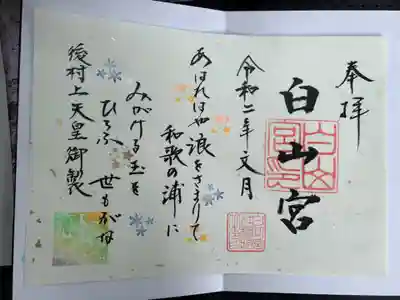 奉拝
白山宮
令和二年文月
あはれはや浪をさまりて
和歌の浦に
みがける玉を
ひろふ世もがな
後村上天皇御製